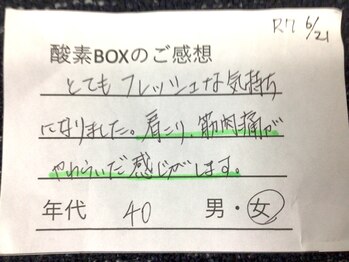 R7 6/21
酸素BOXのご感想
とてもフレッシュな気持ち
になりました。肩こり、筋肉痛が
やわらいだ感じがします。
年代 40 男・女